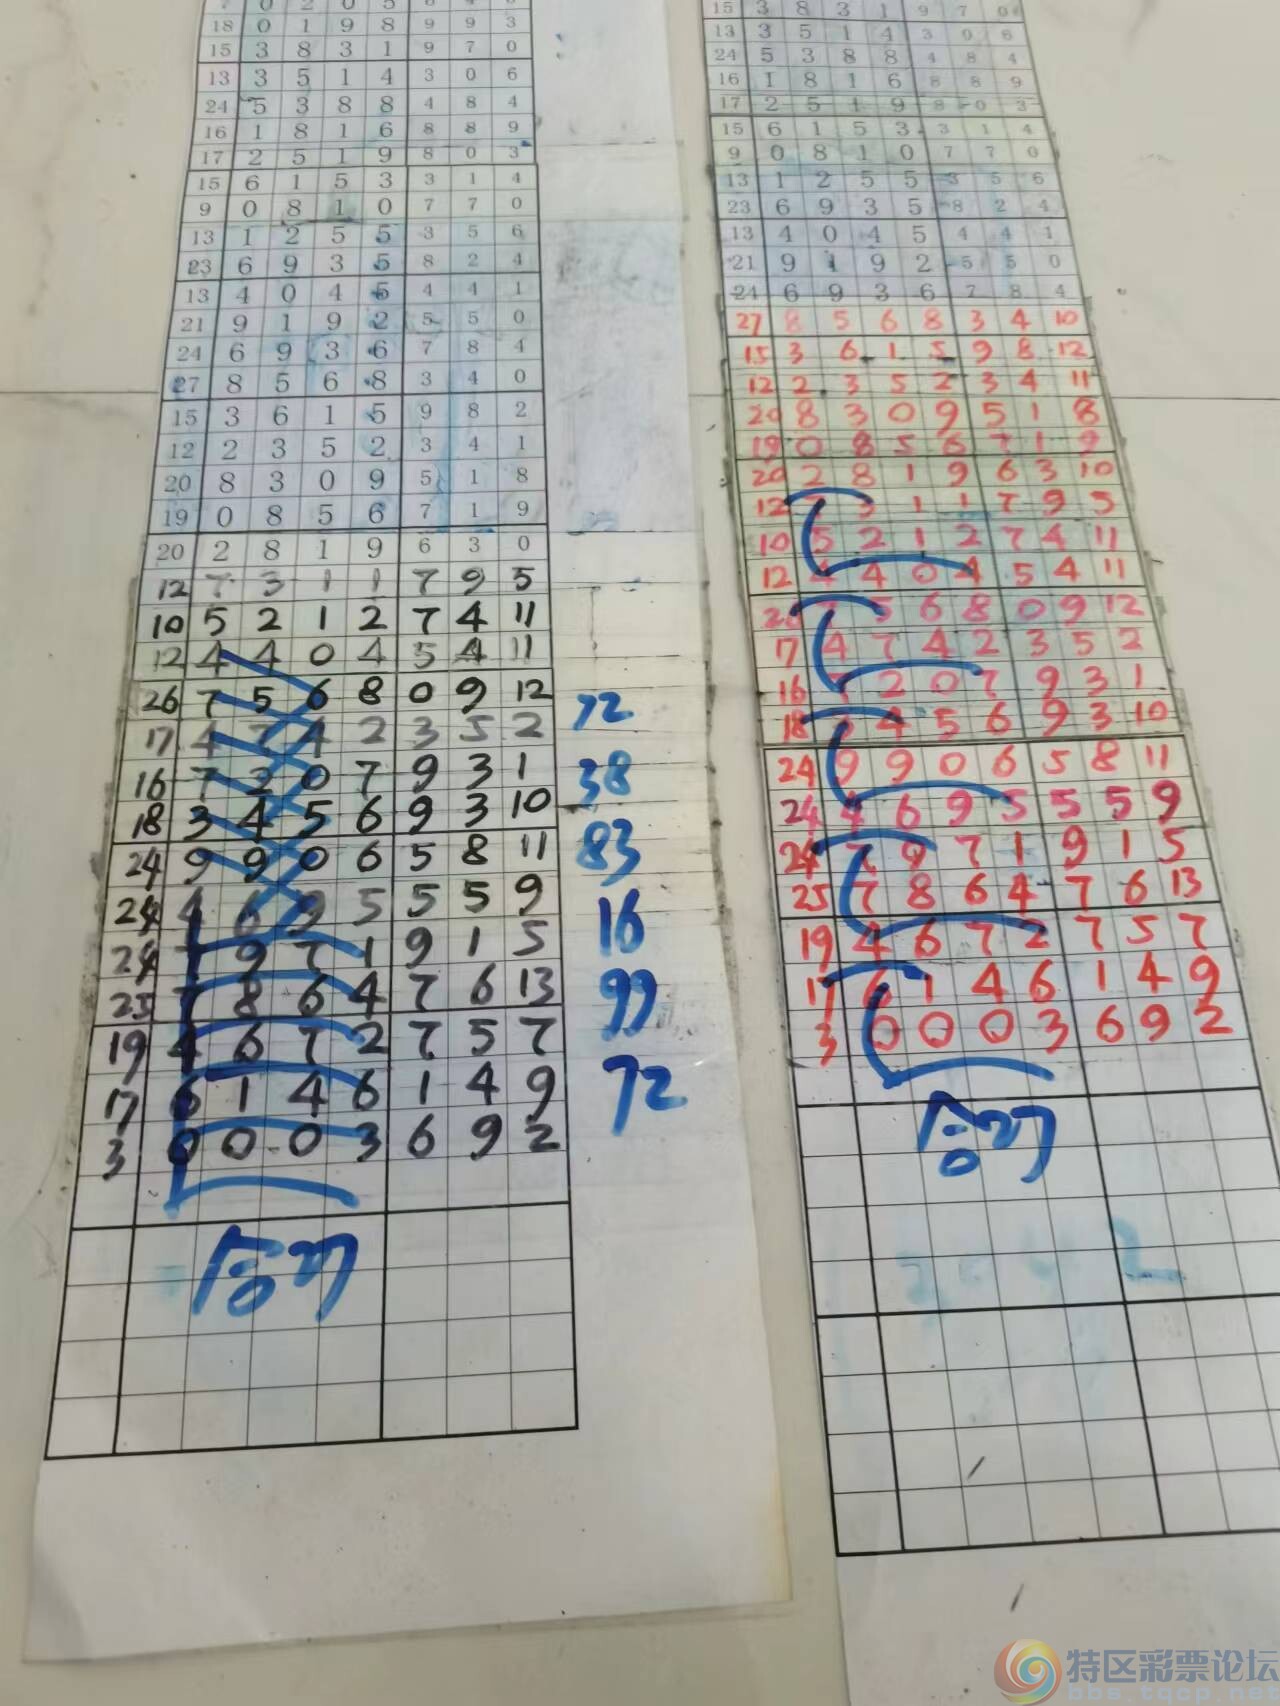 18 0 1 9 8 9 9 3
15 3 8 3 1 9 7 0
13 3 5 1 4 3 0 6
24 5 3 8 8 4 8 4
16 1 8 1 6 8 8 9
17 2 5 1 9 8 0 3
15 6 1 5 3 3 1 4
9 0 8 1 0 7 7 0
13 1 2 5 5 3 5 6
23 6 9 3 5 8 2 4
13 4 0 4 5 4 4 1
21 9 1 9 2 5 5 0
24 6 9 3 6 7 8 4
27 8 5 6 8 3 4 0
15 3 6 1 5 9 8 2
12 2 3 5 2 3 4 1
20 8 3 0 9 5 1 8
19 0 8 5 6 7 1 9
20 2 8 1 9 6 3 0
12 7 3 1 1 7 9 5
10 5 2 1 2 7 4 11
12 4 4 0 4 5 4 11
26 7 5 6 8 0 9 12
17 4 7 4 2 3 5 2
16 7 2 0 7 9 3 1
18 3 4 5 6 9 3 10
24 9 9 0 6 5 8 11
24 4 6 9 5 5 5 9
24 7 9 7 1 9 1 5
25 7 8 6 4 7 6 13
19 4 6 7 2 7 5 7
17 6 1 4 6 1 4 9
3 0 0 0 3 6 9 2
合27
72
38
83
16
99
72
15 3 8 3 1 9 7 0
13 3 5 1 4 3 0 6
24 5 3 8 8 4 8 4
16 1 8 1 6 8 8 9
17 2 5 1 9 8 0 3
15 6 1 5 3 3 1 4
9 0 8 1 0 7 7 0
13 1 2 5 5 3 5 6
23 6 9 3 5 8 2 4
13 4 0 4 5 4 4 1
21 9 1 9 2 5 5 0
24 6 9 3 6 7 8 4
27 8 5 6 8 3 4 10
15 3 6 1 5 9 8 12
12 2 3 5 2 3 4 11
20 8 3 0 9 5 1 8
19 0 8 5 6 7 1 9
20 2 8 1 9 6 3 10
12 7 3 1 1 7 9 5
10 5 2 1 2 7 4 11
12 4 4 0 4 5 4 11
26 7 5 6 8 0 9 12
17 4 7 4 2 3 5 2
16 7 2 0 7 9 3 1
18 3 4 5 6 9 3 10
24 9 9 0 6 5 8 11
24 4 6 9 5 5 5 9
24 7 9 7 1 9 1 5
25 7 8 6 4 7 6 13
19 4 6 7 2 7 5 7
17 6 1 4 6 1 4 9
3 0 0 0 3 6 9 2
合27
特区彩票论坛
bbs.tqcp.net